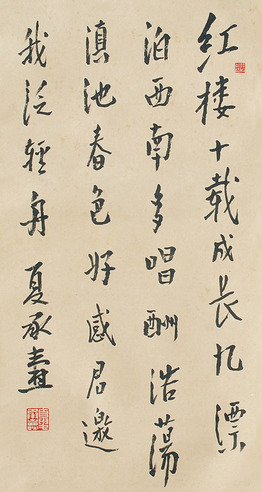 红楼十载成长忆漂
泊西南多唱酬浩荡
滇池春色好感君邀
我泛轻舟 夏承焘